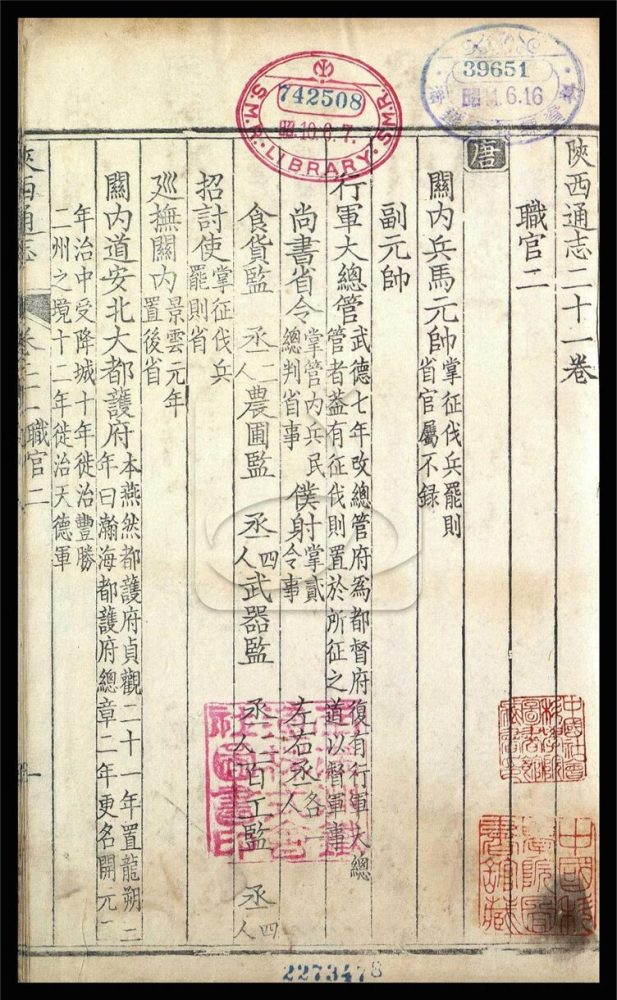 陝西通志二十一卷
職官二
唐
關內兵馬元帥掌征伐兵罷則
省官屬不錄
副元帥
行軍大總管武德七年改總管府爲都督府復有行軍大總
管者葢有征伐則置於所征之道以督軍事
尚書省令掌管內兵民
總判省事
僕射掌貳
令事
左右丞各一
人
食貨監 丞二
人
農圃監 丞四
人
武器監 丞二
人
百工監 丞四
人
招討使掌征伐兵
罷則省
廵撫關內景雲元年
置後省
關內道安北大都護府本燕然都護府貞觀二十一年置龍朔二
年曰瀚海都護府總章二年更名開元二
年治中受降城十年徙治豐勝
二州之境十二年徙治天德軍
陝西通志
卷二十一
職官二
一
S.M.R. LIBRARY S.M.R.
742508
昭10.6.7.
39651
昭11.6.16
2273478